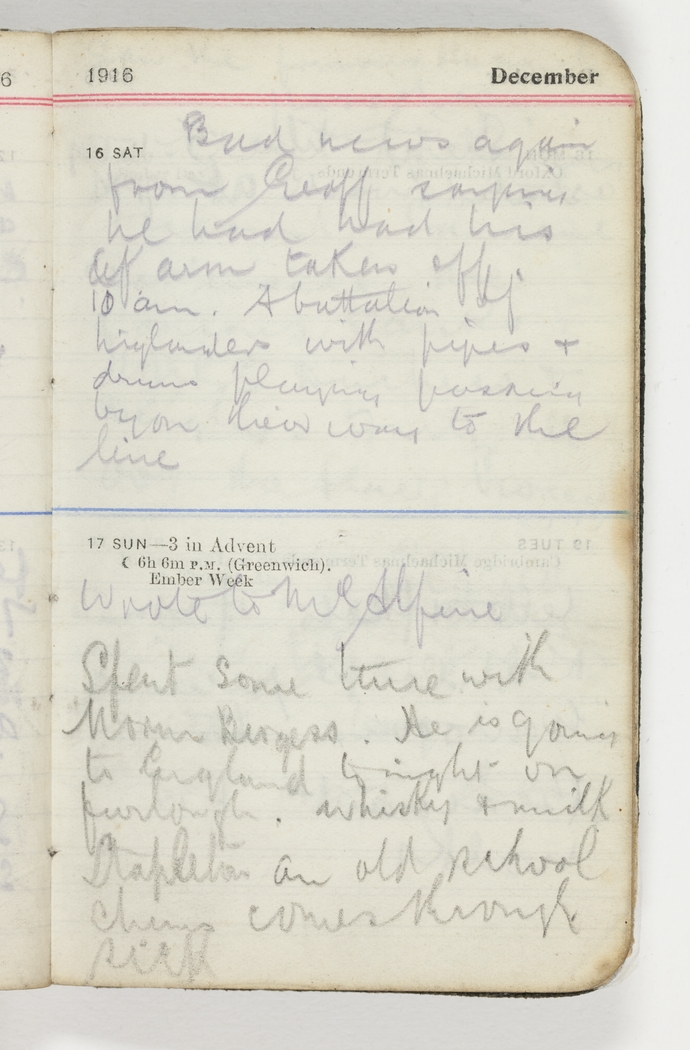 6
1916 December
16 SAT
Bad news again
from Geoff saying
he had had his
left arm taken off.
10 am. A battalion of
higlanders with pipes +
drums playing passing
by on their way to the
line
17 SUN—3 in Advent
☾ 6h 6m P.M. (Greenwich).
Ember Week
Wrote to McAlpine
Spent some time with
Norm Burgess. He is going
to England tonight on
furlough. Whisky + milk
Stapleton an old school
chum comes through
sick